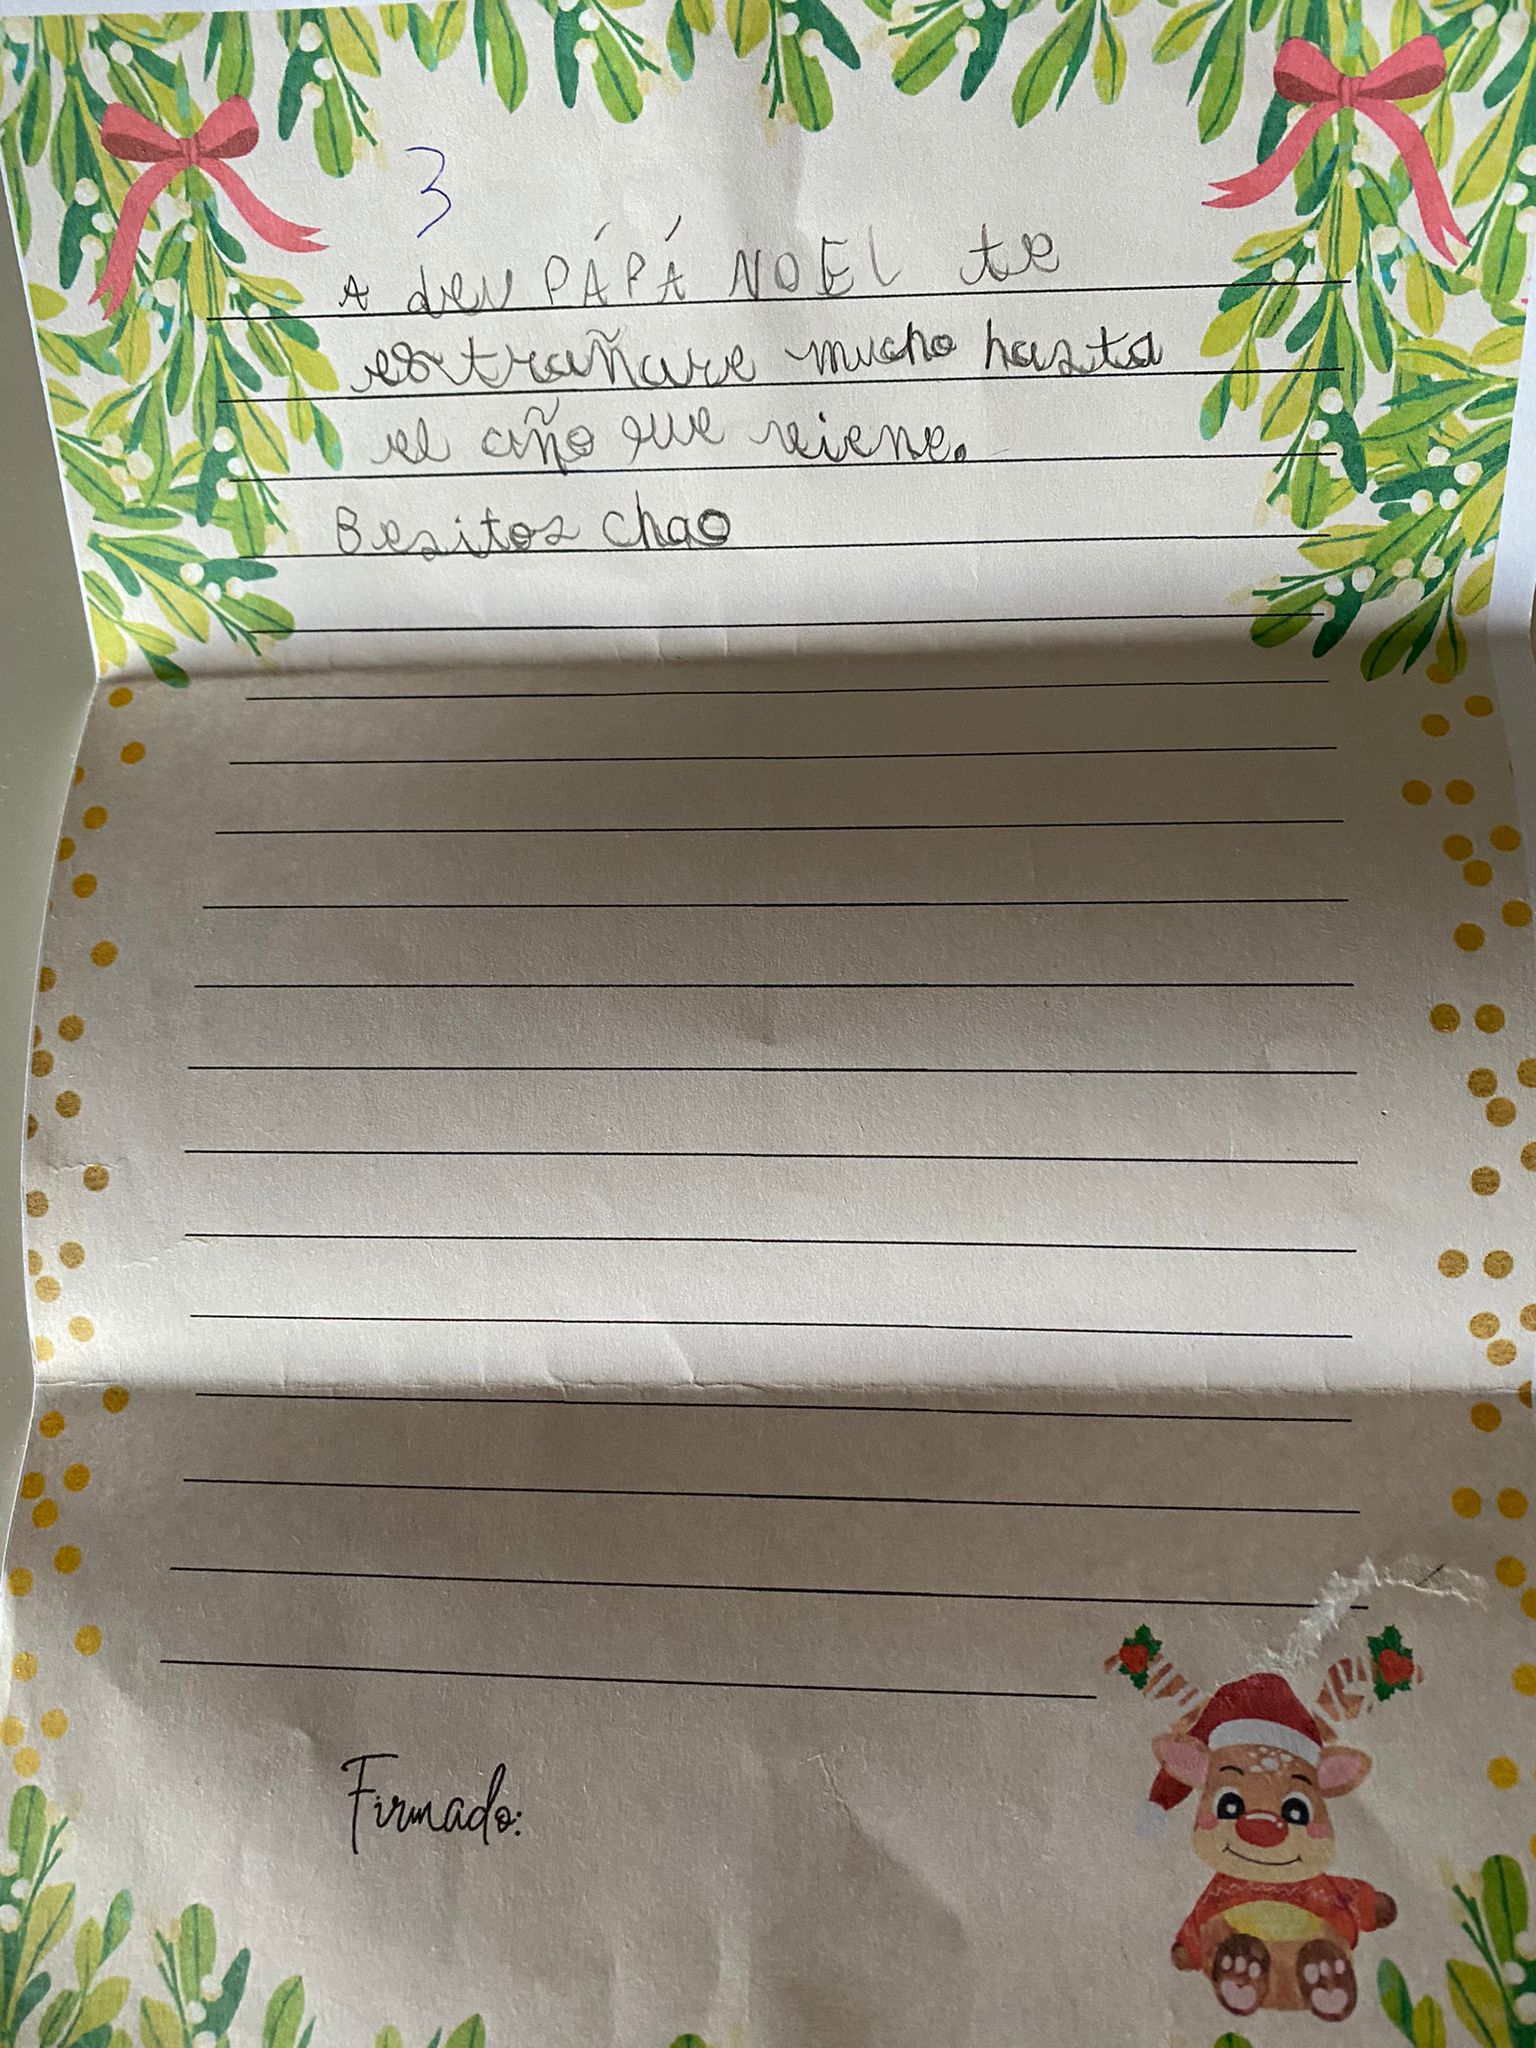 3
A deu PÁPÁ NOEL te
extrañare mucho hasta
el año que viene.
Besitos chao
Firmado: